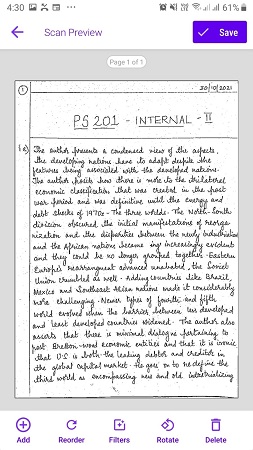 4:30
61%
Scan Preview
Save
Page 1 of 1
1
30/10/2021
PS 201 - INTERNAL - II
The author presents a condensed view of the aspects,
the developing nations have to adapt despite the
features being associated with the developed nations.
The author posits how there is more to the trilateral
economic classification that was created in the post
war period and was definitive until the energy and
debt shocks of 1970s - The three worlds. The North-South
division obscured the initial manifestations of reorga
nization and the disparities between the newly industrialised
and the African nations became increasingly evident
and they could no longer grouped together. Eastern
Europe's rearrangement advanced unabated, the Soviet
Union crumbled as well - Adding countries like Brazil,
Mexico and Southeast Asian nations made it considerably
more challenging. Newer types of fourth and fifth
world evolved when the barrier between less developed
and least developed countries widened. The author also
asserts that there is minimal dialogue pertaining to
post Bretton-wood economic entities and that it is ironic
that U.S is both the leading debtor and creditor in
the global capital market. He goes on to redefine the
third world as encompassing new and old industrializing
Add
Reorder
Filters
Rotate
Delete